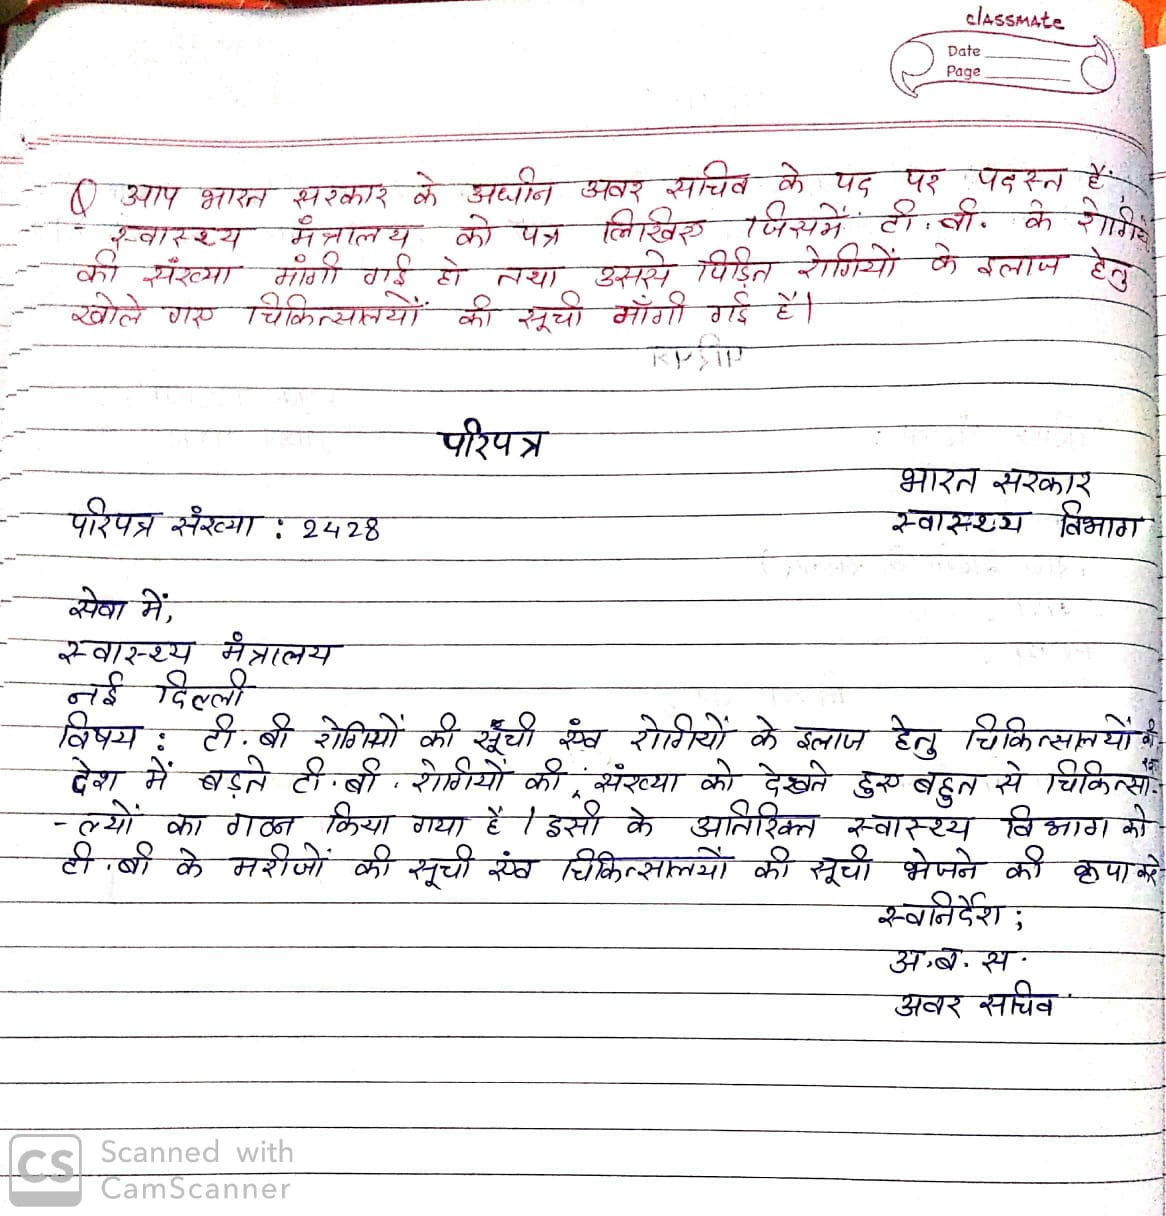 classmate
Date
Page
Q आप भारत सरकार के अधीन अवर सचिव के पद पर पदस्त हैं,
स्वास्थ्य मंत्रालय को पत्र लिखिए जिसमें टी.बी. के रोगियों
की संख्या मांगी गई हो तथा उससे पिड़ित रोगियों के इलाज हेतु
खोले गए चिकित्सालयों की सूची माँगी गई है।
परिपत्र
भारत सरकार
परिपत्र संख्या : 2428
स्वास्थ्य विभाग
सेवा में,
स्वास्थ्य मंत्रालय
नई दिल्ली
विषय : टी.बी रोगियों की सूची एंव रोगियों के इलाज हेतु चिकित्सालयों की
देश में बड़ते टी.बी. रोगियों की संख्या को देखते हुए बहुत से चिकित्सा-
-ल्यों का गठन किया गया है। इसी के अतिरिक्त स्वास्थ्य विभाग को
टी.बी के मरीजों की सूची एंव चिकित्सालयों की सूची भेजने की कृपा करे
स्वनिर्देश;
अ.ब.स.
अवर सचिव
CS Scanned with
CamScanner